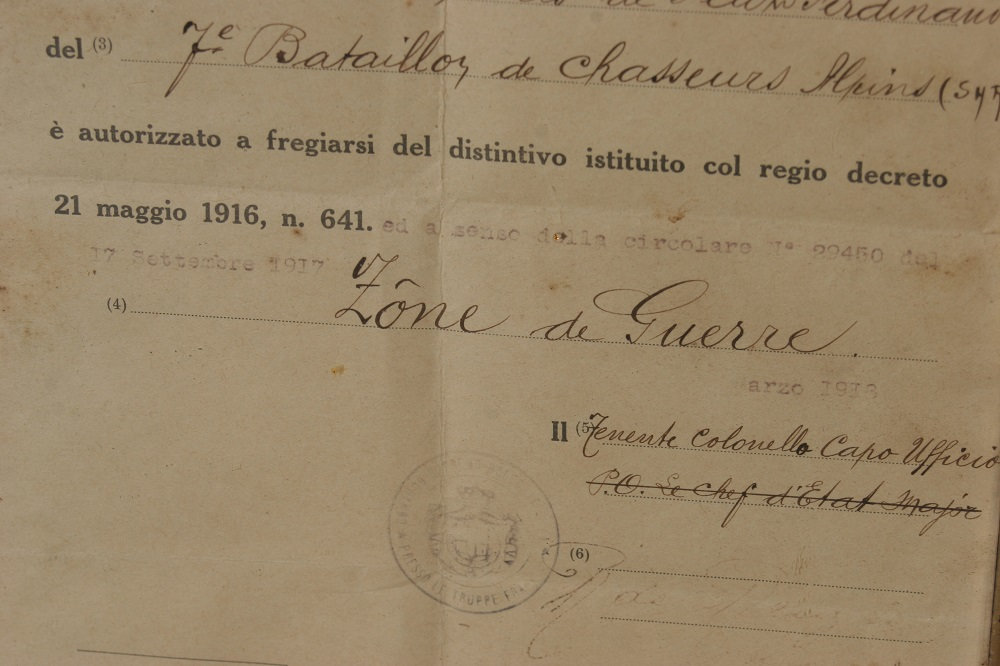 Ferdinand
del (3) 7e Bataillon de Chasseurs Alpins (S H F
è autorizzato a fregiarsi del distintivo istituito col regio decreto
21 maggio 1916, n. 641. ed a senso della circolare N° 29450 del
17 Settembre 1917
(4) Zône de Guerre.
arzo 1918
Il (5) Tenente Colonello Capo Ufficio
P.O. Le Chef d'Etat Major
(6)
TRUPPE